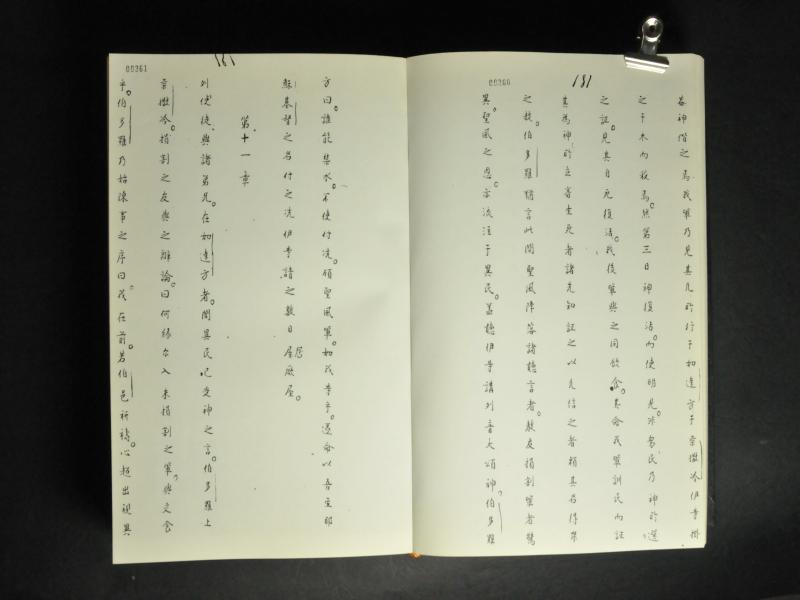 00300
181
盖神偕之焉我軰乃見其凡所行于如達方于柔撒冷伊等掛
之于木而殺焉。然第三日神復活。而使明見。非衆民乃神所選
之証。見其自死復活。我後軰與之同飲食。其命我軰訓民而証
其為神所立審生死者諸先知証之以凡信之者頼其名得罪
之赦。伯多羅猶言此間聖風降各諸聽言者。教友損割軰者驚
異。聖風之恩亦流注于異民。蓋聽伊等講列音大頌神。伯多羅
00361
181
方曰。誰能禁水。不使付洗。領聖風軰。如我等乎。遂命以吾主耶
穌基督之名付之洗伊等請之數日居厥屋。
第十一章
列使徒與諸弟兄。在如達方者。聞異民已受神之言。伯多羅上
柔撒冷。損割之友與之辯論。曰何縁尔入未損割之軰與交食
乎。伯多羅乃始陳事之序曰。我在前。若伯邑祈禱。心超出視異